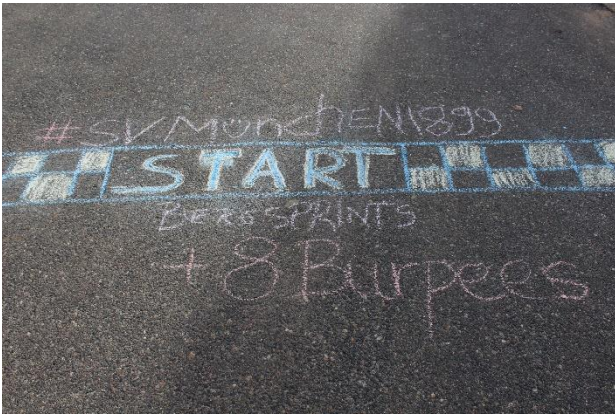 #SVMünchEN1899
START
BERGSPRINTS
+8 Burpees